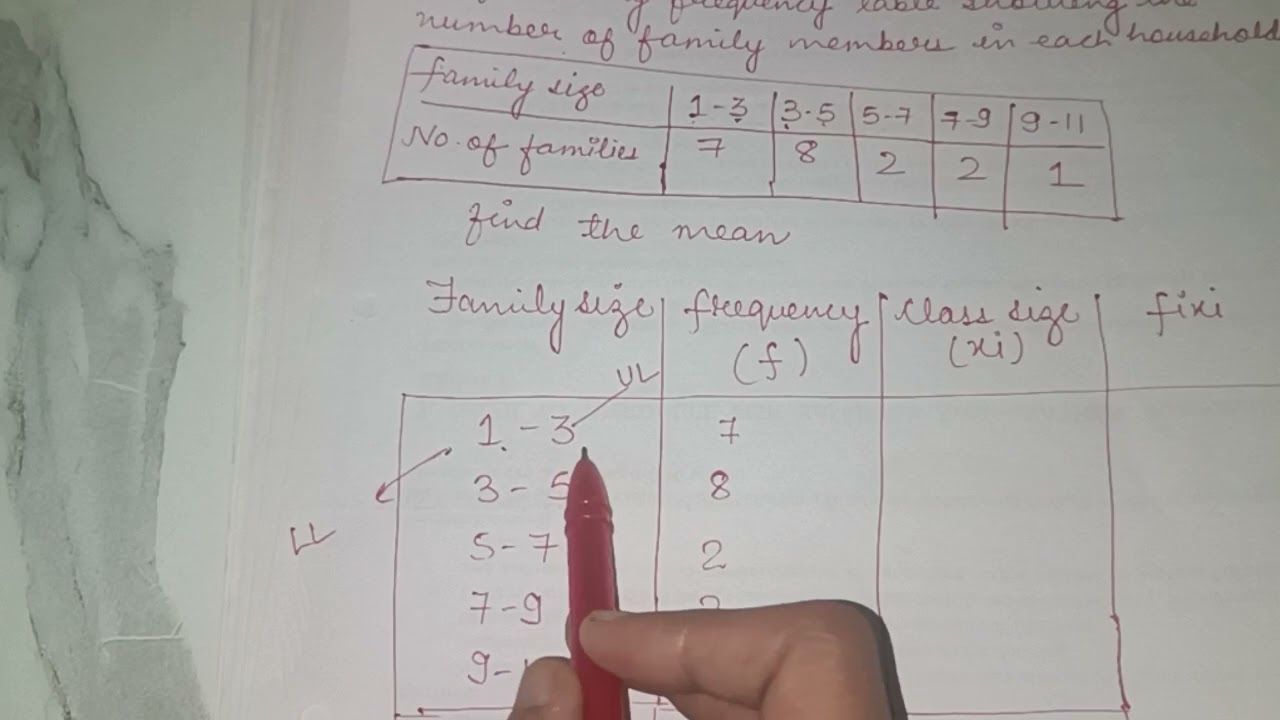 frequency table showing the
number of family members in each household
family size 1-3 3-5 5-7 7-9 9-11
No. of families 7 8 2 2 1
find the mean
Family size frequency (f) Class size (xi) fixi
UL
1-3 7
3-5 8
LL
5-7 2
7-9
9-